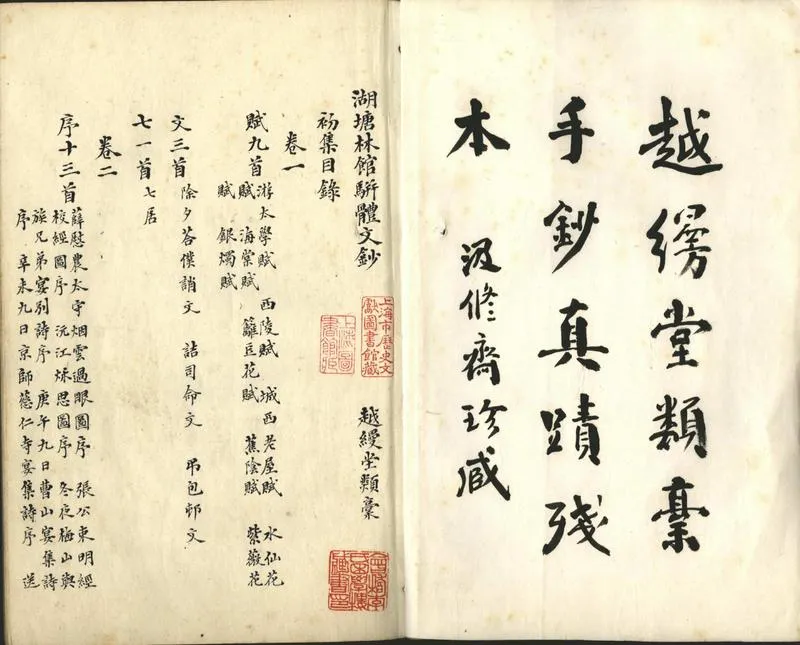 越縵堂類稾
手鈔真蹟殘
本 汲修齋珍藏
湖塘林館駢體文鈔
初集目錄 越縵堂類稾
卷一
賦九首 游太學賦 西陵賦 城西老屋賦 水仙花
賦 海棠賦 籬豆花賦 蕉陰賦 紫薇花
賦 銀燭賦
文三首 除夕荅僕誚文 詰司命文 弔包邨文
七一首 七居
卷二
序十三首 薛慰農太守烟雲過眼圖序 張公束明經
校經圖序 沅江秌思圖序 冬夜梅山與
族兄弟宴別詩序 庚午九日曹山宴集詩
序 辛未九日京師慈仁寺宴集詩序 送
上海市歷史文
獻圖書館藏
上海圖
書館藏